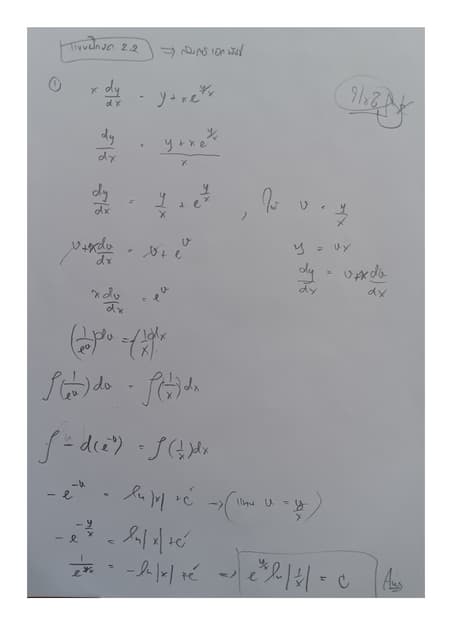 แบบฝึกหัด 2.2 ⇒ สมการเอกพันธ์
① x dy/dx = y + xe^(y/x)
dy/dx = (y + xe^(y/x))/x
dy/dx = y/x + e^(y/x) , ให้ v = y/x
y = vx
v + x dv/dx = v + e^v
dy/dx = v + x dv/dx
x dv/dx = e^v
(1/e^v) dv = (1/x) dx
∫(1/e^v) dv = ∫(1/x) dx
∫ -d(e^-v) = ∫(1/x) dx
-e^-v = ln|x| + c' → (แทน v = y/x)
-e^(-y/x) = ln|x| + c'
1/e^(y/x) = -ln|x| + c' ⇒ e^(y/x) ln|1/x| = c Ans